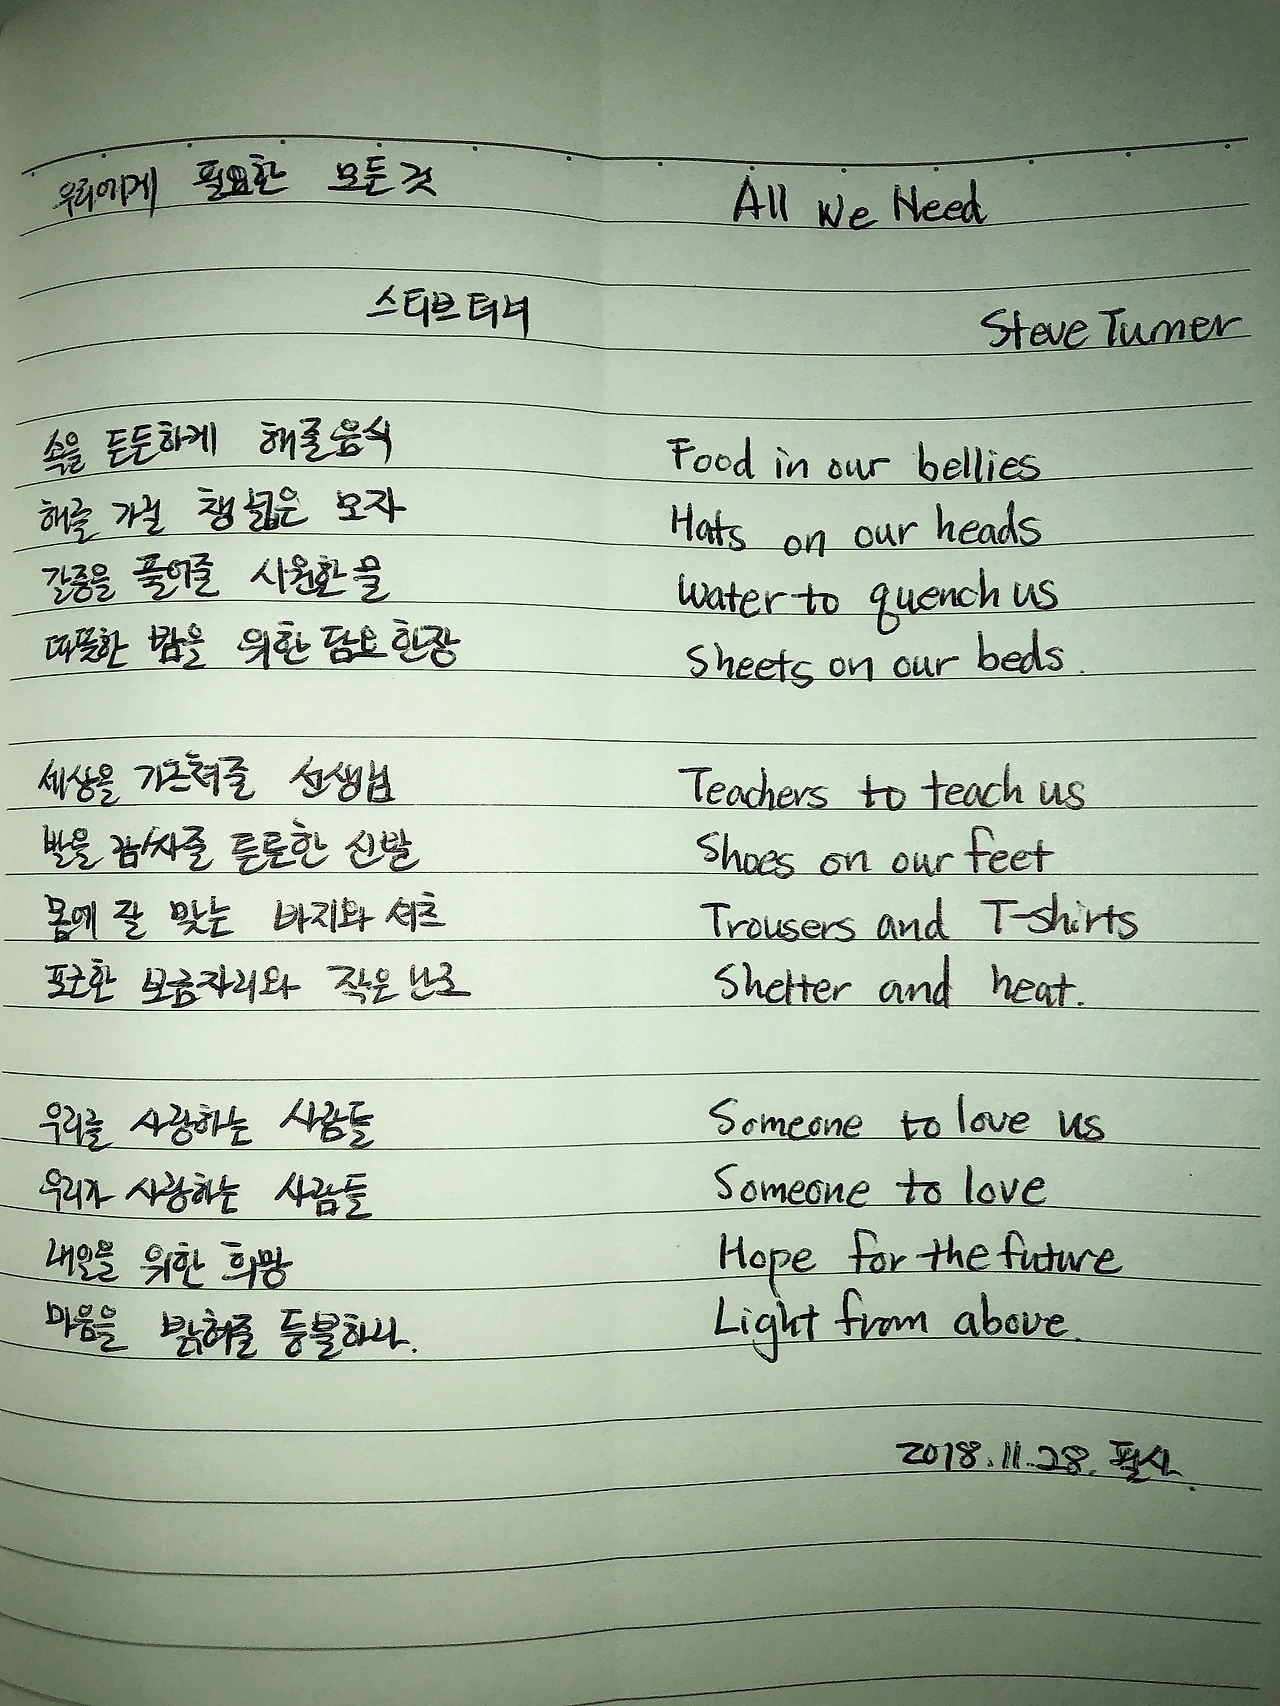 우리에게 필요한 모든것
스티브 터너
속을 든든하게 해줄 음식
해를 가릴 챙 넓은 모자
갈증을 풀어줄 시원한 물
따뜻한 밤을 위한 담요 한장
세상을 가르쳐줄 선생님
발을 감싸줄 튼튼한 신발
몸에 잘 맞는 바지와 셔츠
포근한 보금자리와 작은 난로
우리를 사랑하는 사람들
우리가 사랑하는 사람들
내일을 위한 희망
마음을 밝혀줄 등불하나.
All We Need
Steve Turner
Food in our bellies
Hats on our heads
Water to quench us
Sheets on our beds.
Teachers to teach us
Shoes on our feet
Trousers and T-shirts
Shelter and heat.
Someone to love us
Someone to love
Hope for the future
Light from above.
2018.11.28. 필사.